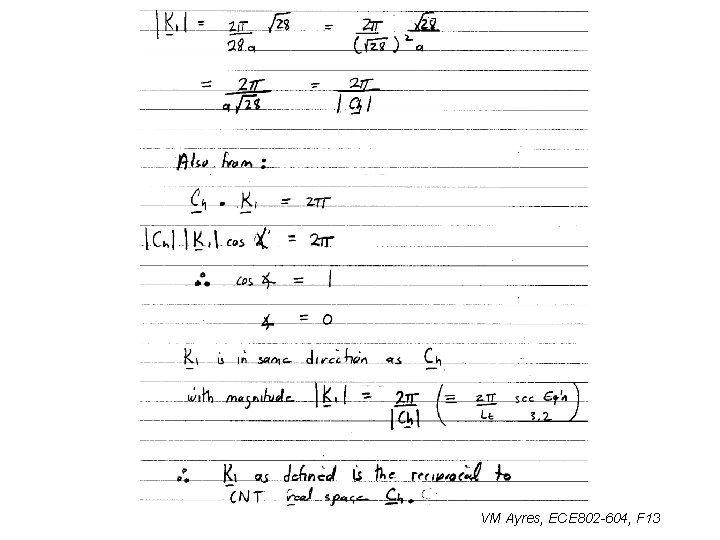 |K₁| = 2π/28a √28 = 2π/(√28)² √28/a
= 2π/a√28 = 2π/|Ch|
Also from:
Ch • K₁ = 2π
|Ch| |K₁| cos ∡ = 2π
∴ cos ∡ = 1
∡ = 0
K₁ is in same direction as Ch
with magnitude |K₁| = 2π/|Ch| (≡ 2π/Lt see Eq'n 3.2)
∴ K₁ as defined is the reciprocal to
CNT real space Ch.
VM Ayres, ECE802-604, F13